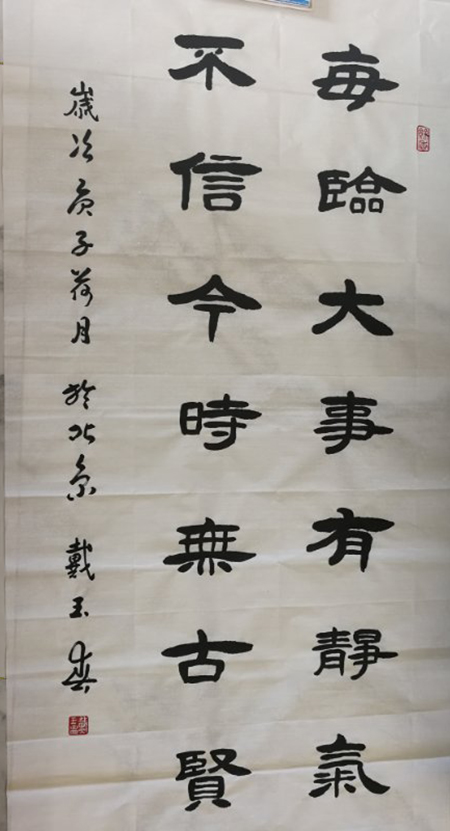 每臨大事有靜氣
不信今時無古賢
歲次庚子荷月於北京戴玉